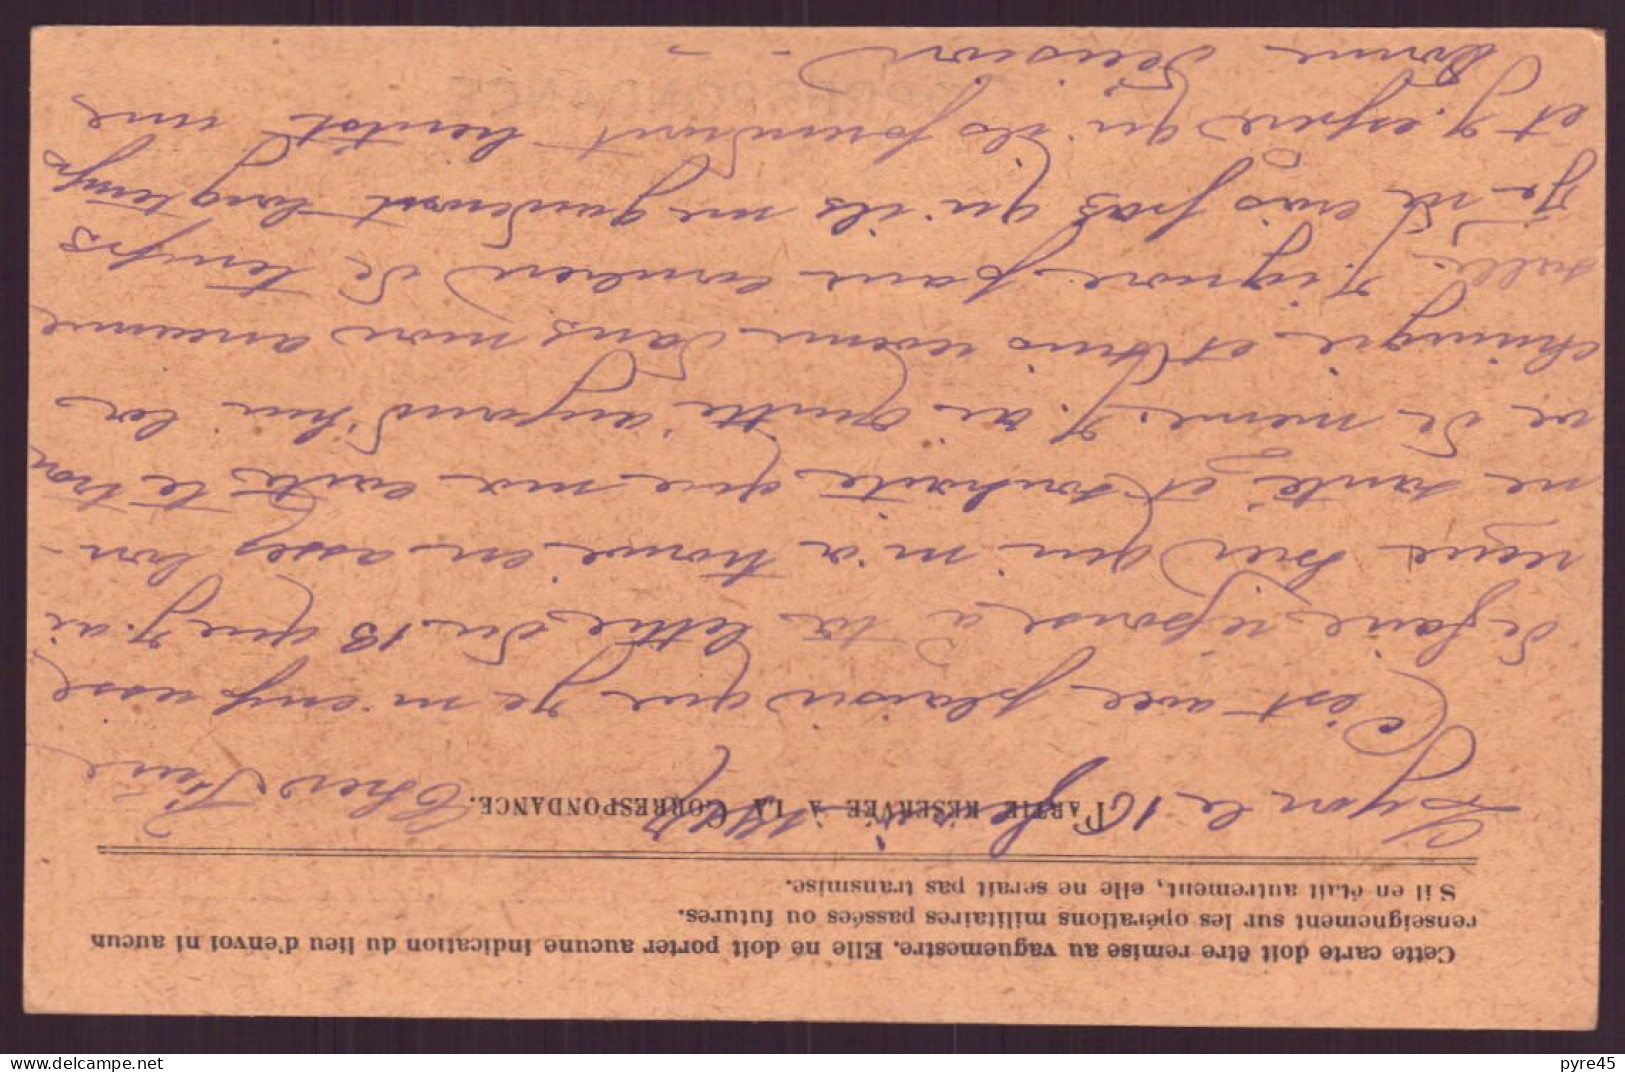 Cette carte doit être remise au vaguemestre. Elle ne doit porter aucune indication du lieu d'envoi ni aucun
renseignement sur les opérations militaires passées ou futures.
S'il en était autrement, elle ne serait pas transmise.
PARTIE RÉSERVÉE À LA CORRESPONDANCE.
Lyon le 16 février
Cher
C'est avec plaisir que je m'empresse
de faire réponse à ta lettre du 13 que j'ai
reçue hier qui m'a trouvé en assez bon-
ne santé et souhaite que ma carte te trou
ve de même. J'ai quitté aujourd'hui la
chirurgie et suis revenu dans mon ancienne
salle. J'ignore pour combien de temps
Je ne crois pas qu'ils me garderont longtemps
et j'espère qu'ils prendront bientôt une
bonne décision
CORRESPONDANCE
pyre45